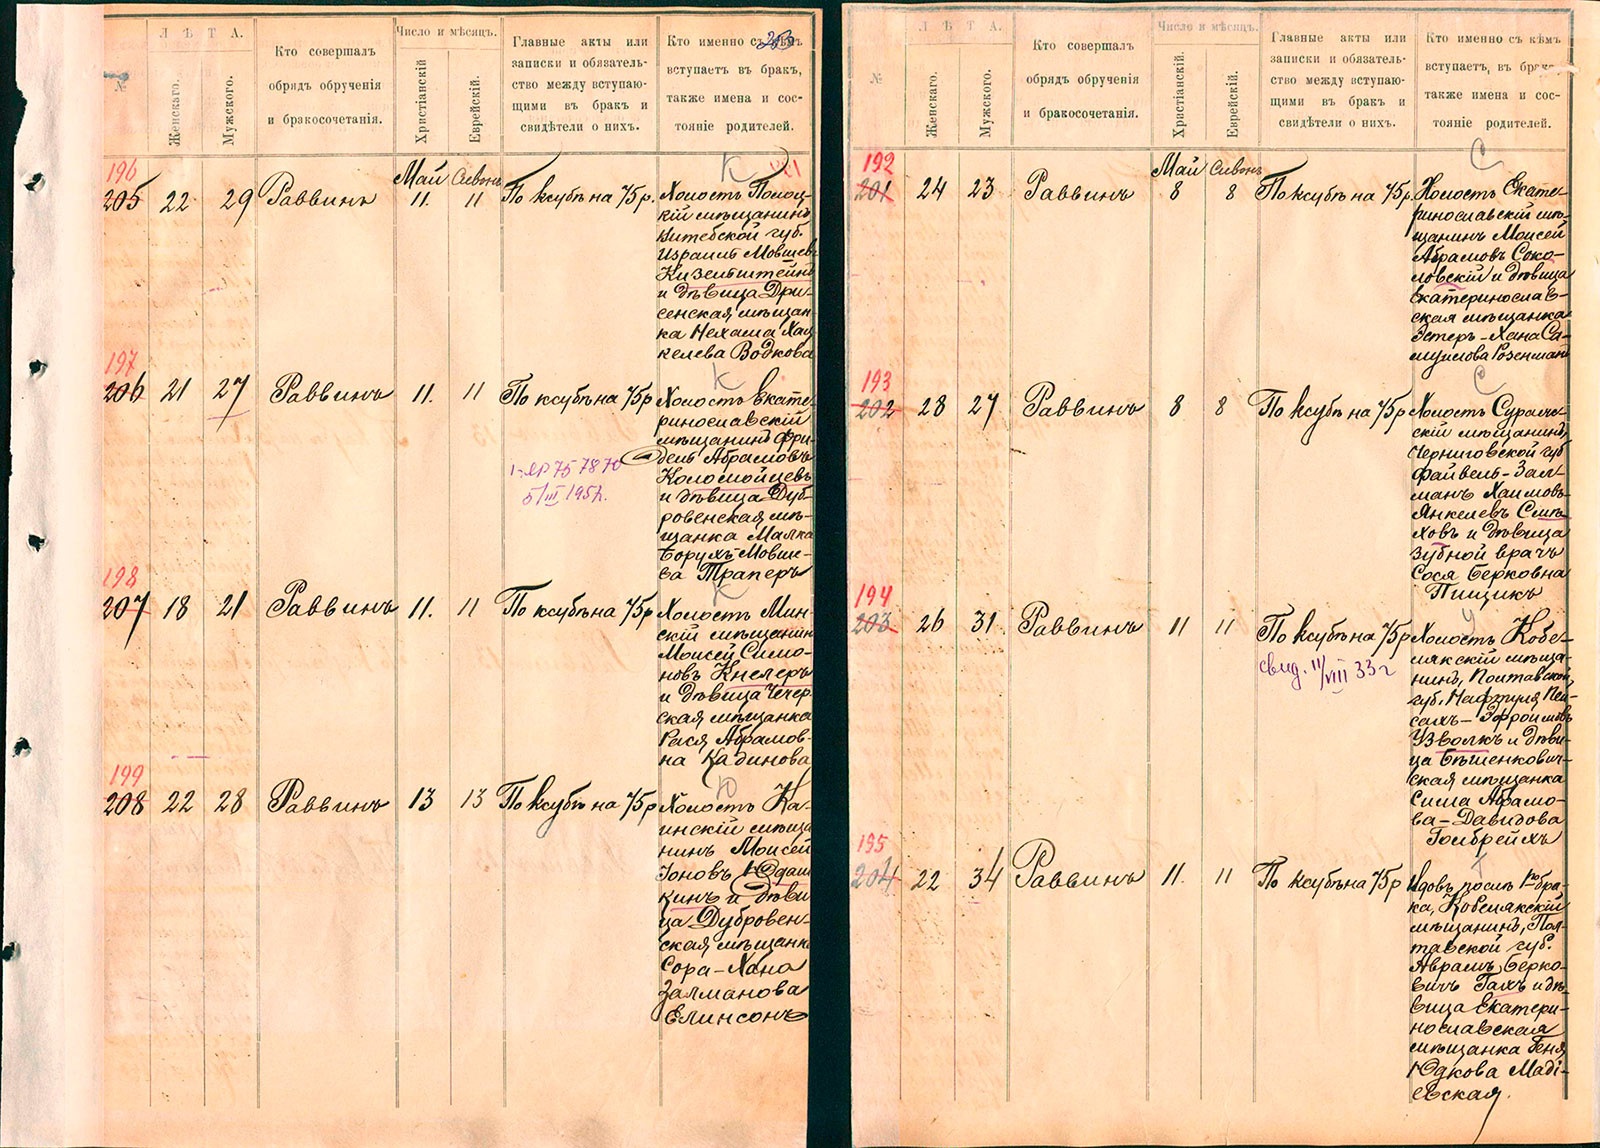 253
№
ЛѢТА.
Женскаго.
Мужского.
Кто совершалъ
обрядъ обрученія
и бракосочетанія.
Число и мѣсяцъ.
Христіанскій
Еврейскій.
Главные акты или
записки и обязатель-
ство между вступаю-
щими въ бракъ и
свидѣтели о нихъ.
Кто именно съ кѣмъ
вступаетъ въ бракъ,
также имена и сос-
тояніе родителей.
196
205 22 29 Раввинъ
Май Сивонъ
11. 11
По ксубѣ на 75 р.
К
Холостъ Полоц-
кій мѣщанинъ
Витебской губ.
Израиль Мовшев
Кизельштейнъ
и дѣвица Дри-
сенская мѣщан-
ка Нехама Хац-
келева Водкова
197
206 21 27 Раввинъ 11. 11 По ксубѣ на 75 р
К
Холостъ Екате-
ринославскій
мѣщанинъ Фри-
дель Абрамовъ
Коломойцевъ
и дѣвица Дуб-
ровенская мѣ-
щанка Малка
Борухъ-Мовше-
ва Траперъ
5/III 195
198
207 18 21 Раввинъ 11. 11 По ксубѣ на 75 р
К
Холостъ Мин-
скій мѣщанинъ
Моисей Симо-
новъ Кнелеръ
и дѣвица Чечер-
ская мѣщанка
Рася Абрамов-
на Кадинова
199
208 22 28 Раввинъ 13 13 По ксубѣ на 75 р
Ю
Холостъ Ка-
инскій мѣща
нинъ Моисей
Іоновъ Юдаш
кинъ и дѣви
ца Дубровен-
ская мѣщанк
Сора-Хана
Залманова
Елинсонъ
№
ЛѢТА.
Женскаго.
Мужского.
Кто совершалъ
обрядъ обрученія
и бракосочетанія.
Число и мѣсяцъ.
Христіанскій.
Еврейскій.
Главные акты или
записки и обязатель-
ство между вступаю-
щими въ бракъ и
свидѣтели о нихъ.
Кто именно съ кѣмъ
вступаетъ, въ бракъ
также имена и сос-
тояніе родителей.
192
201 24 23 Раввинъ
Май Сивонъ
8 8
По ксубѣ на 75 р.
С
Холостъ Екате-
ринославскій мѣ-
щанинъ Моисей
Абрамовъ Соко-
ловскій и дѣвица
Екатеринослав-
ская мѣщанка
Эстеръ-Хана Са-
муилова Розенманъ
193
202 28 27 Раввинъ 8 8 По ксубѣ на 75 р
С
Холостъ Суражс-
скій мѣщанинъ,
Черниговской губ
Файвель-Зал-
манъ Хаимовъ-
Янкелевъ Смѣ-
ховъ и дѣвица
зубной врачъ
Сося Берковна
Пищикъ
194
203 26 31 Раввинъ 11 11 По ксубѣ на 75 р
свид. 11/VIII 33 г
У
Холостъ Кобе-
лякскій мѣща-
нинъ, Полтавской
губ. Нафтуля Пей-
сахъ-Эфроимовъ
Узволкъ и дѣви-
ца Бѣшенкович-
ская мѣщанка
Сима Абрамо-
ва-Давидова
Гольбрейхъ
195
204 22 34 Раввинъ 11. 11 По ксубѣ на 75 р
Вдовъ послѣ 1го бра-
ка, Кобелякскій
мѣщанинъ, Пол-
тавской губ.
Аврамъ Берко-
вичъ Гахъ и дѣ-
вица Екатери-
нославская
мѣщанка Геня
Юдкова Маді-
евская.